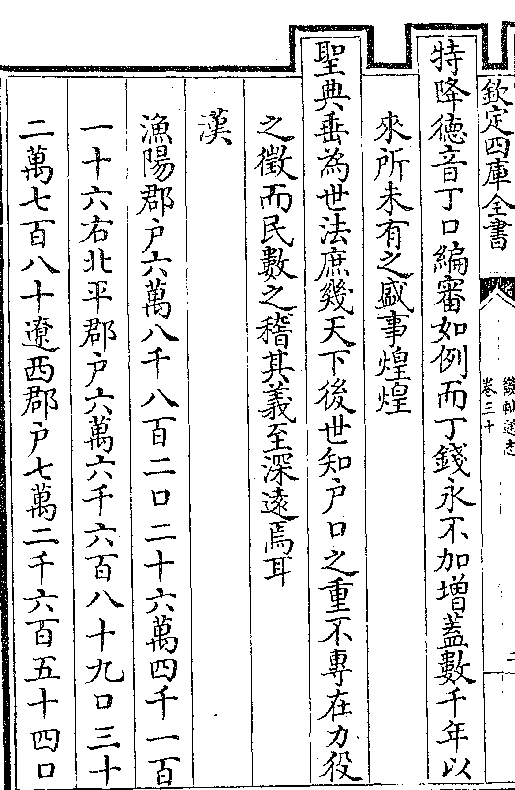 欽定四庫全書
畿輔通志
卷三十
特降德音丁口編審如例而丁錢永不加增蓋數千年以
來所未有之盛事煌煌
聖典垂為世法庶幾天下後世知户口之重不專在力役
之徵而民數之稽其義至深遠焉耳
漢
漁陽郡户六萬八千八百二口二十六萬四千一百
一十六右北平郡户六萬六千六百八十九口三十
二萬七百八十遼西郡户七萬二千六百五十四口